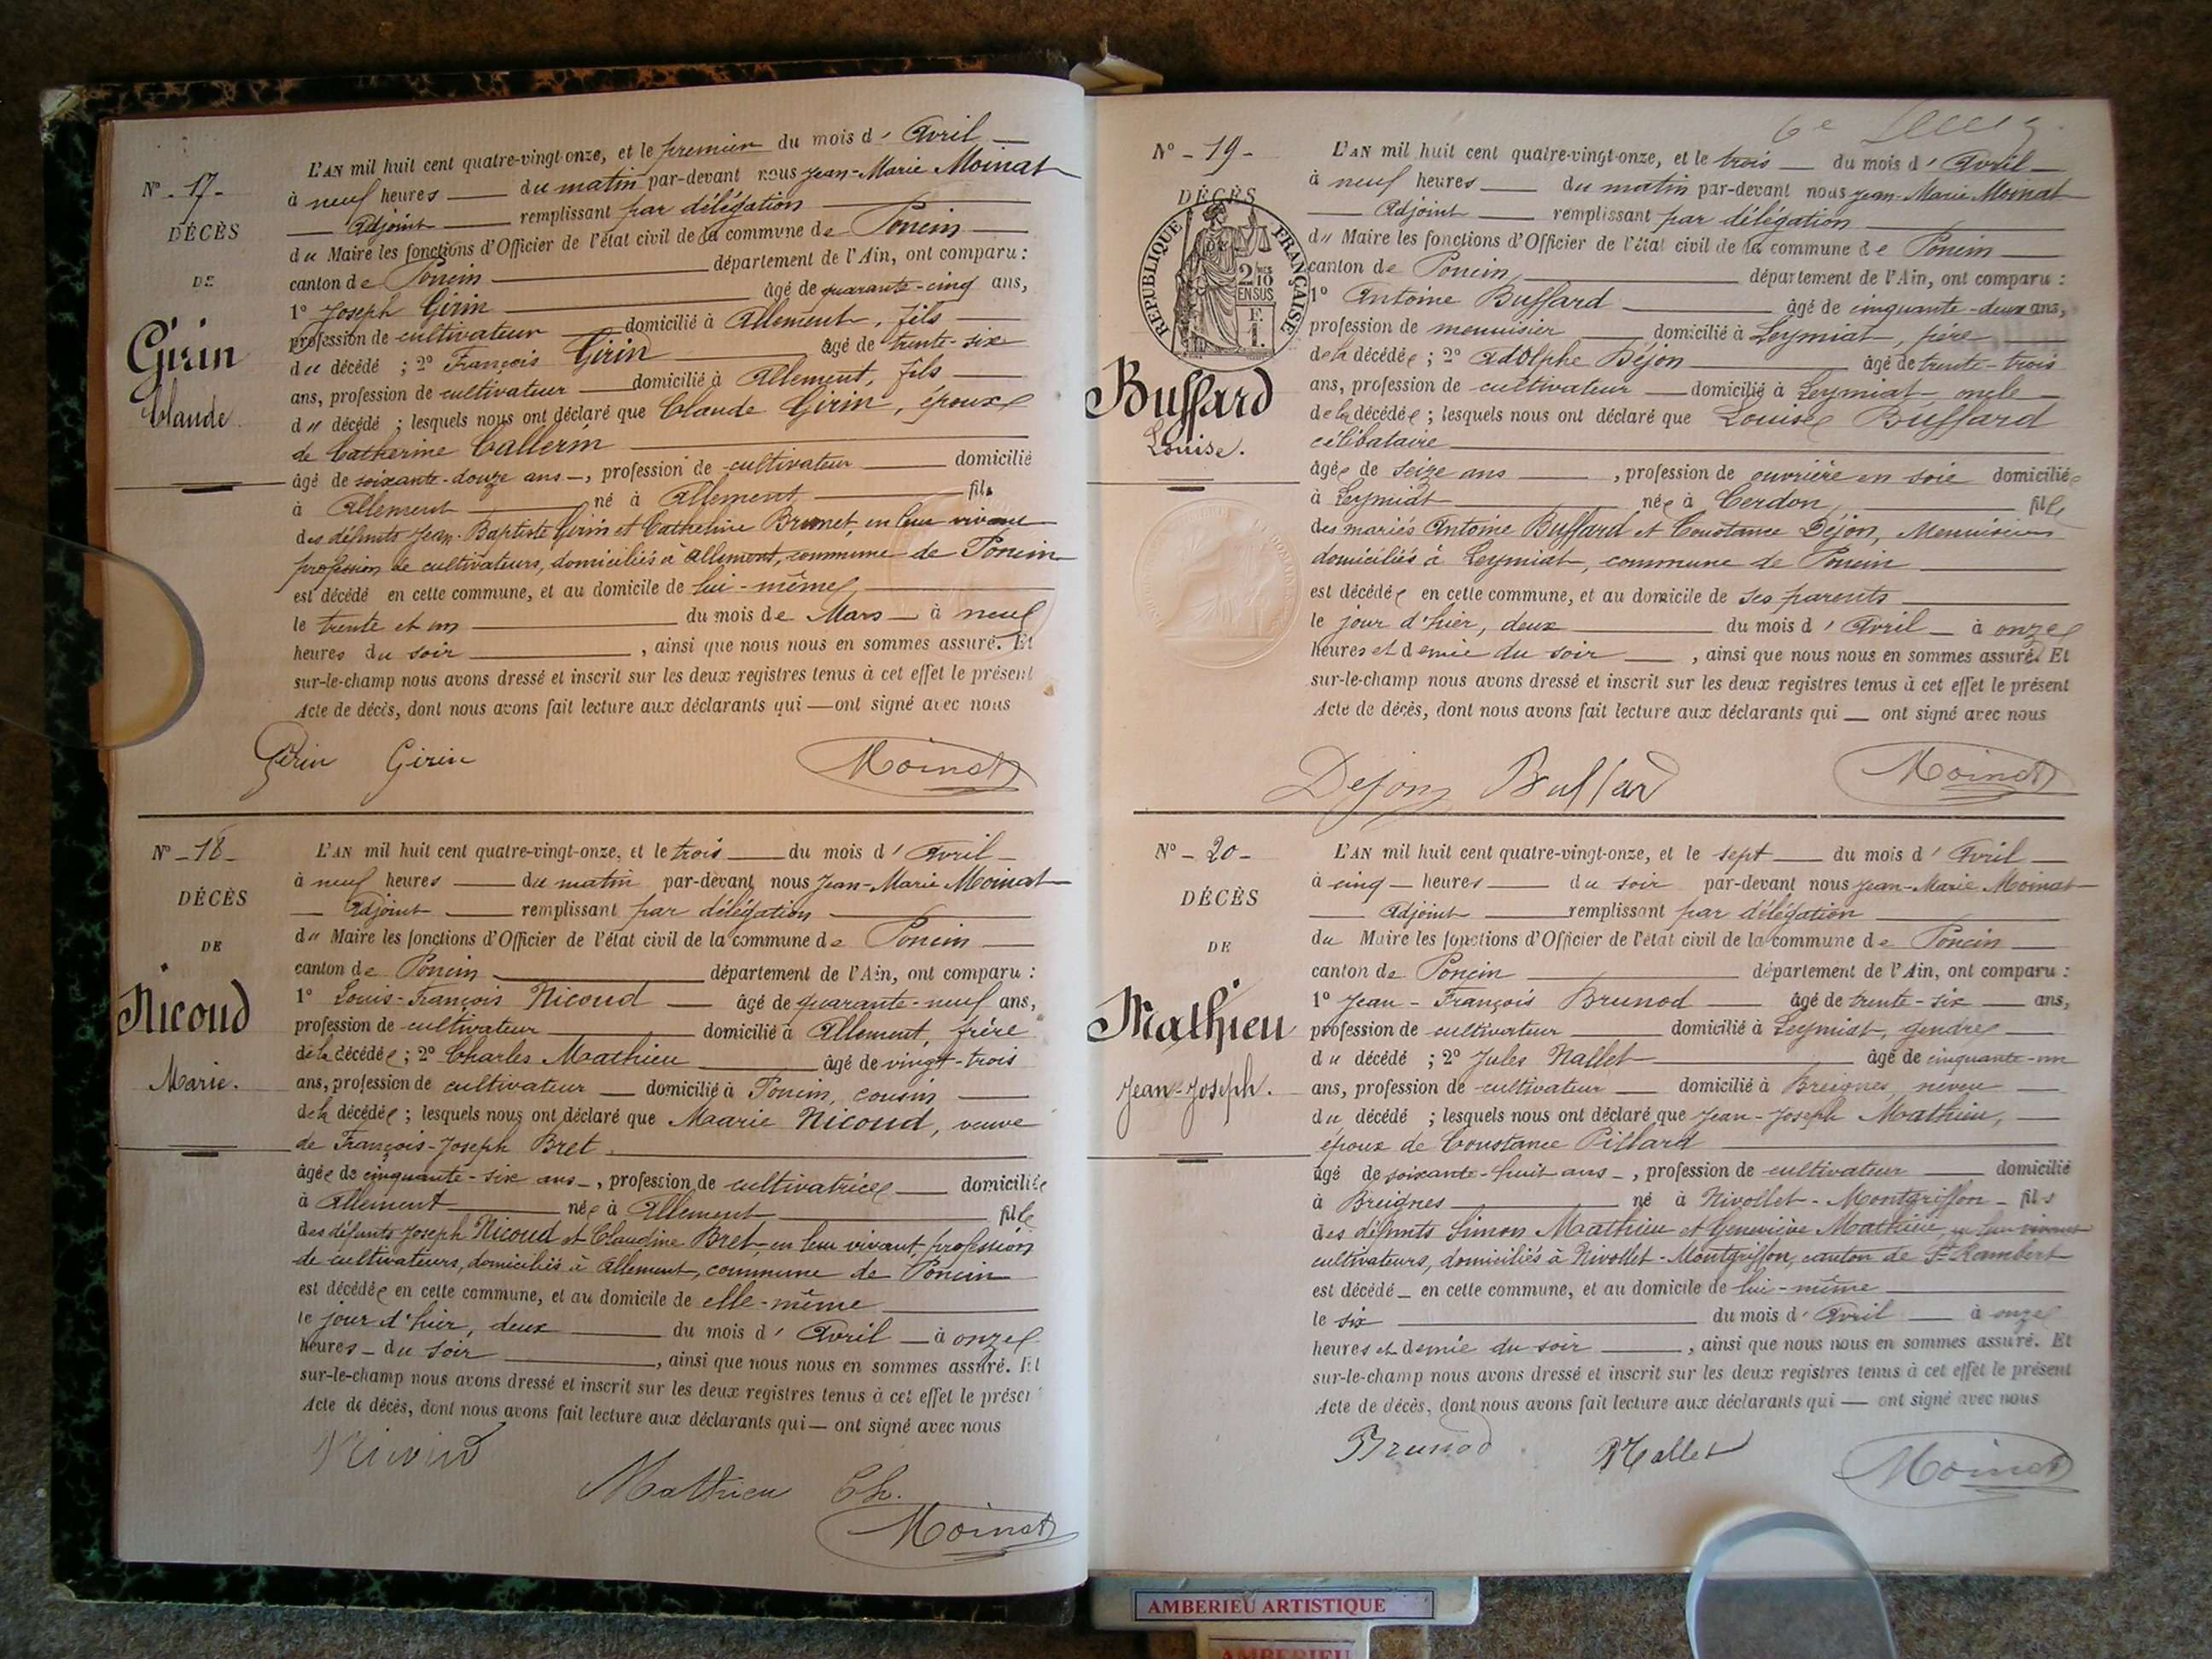 N° - 17 -
DÉCÈS
DE
Girin
Claude
L'AN mil huit cent quatre-vingt-onze, et le premier du mois d' Avril
à neuf heures du matin par-devant nous Jean-Marie Moinat
Adjoint remplissant par délégation
du Maire les fonctions d'Officier de l'état civil de la commune de Poncin
canton de Poncin département de l'Ain, ont comparu :
1° Joseph Girin âgé de quarante-cinq ans,
profession de cultivateur domicilié à Allement, fils
du décédé ; 2° François Girin âgé de trente-six
ans, profession de cultivateur domicilié à Allement, fils
du décédé ; lesquels nous ont déclaré que Claude Girin, époux
de Catherine Callerin
âgé de soixante-douze ans, profession de cultivateur domicilié
à Allement né à Allement fils
des défunts Jean-Baptiste Girin et Catherine Brunet, en leur vivant
profession de cultivateurs, domiciliés à Allement, commune de Poncin
est décédé en cette commune, et au domicile de lui-même
le trente et un du mois de Mars à neuf
heures du soir, ainsi que nous nous en sommes assuré. Et
sur-le-champ nous avons dressé et inscrit sur les deux registres tenus à cet effet le présent
Acte de décès, dont nous avons fait lecture aux déclarants qui ont signé avec nous
Girin Girin Moinat
N° - 18 -
DÉCÈS
DE
Nicoud
Marie.
L'AN mil huit cent quatre-vingt-onze, et le trois du mois d' Avril
à neuf heures du matin par-devant nous Jean-Marie Moinat
Adjoint remplissant par délégation
du Maire les fonctions d'Officier de l'état civil de la commune de Poncin
canton de Poncin département de l'Ain, ont comparu :
1° Louis-François Nicoud âgé de quarante-neuf ans,
profession de cultivateur domicilié à Allement, frère
de la décédée ; 2° Charles Mathieu âgé de vingt-trois
ans, profession de cultivateur domicilié à Poncin, cousin
de la décédée ; lesquels nous ont déclaré que Maarie Nicoud, veuve
de François-Joseph Bret.
âgée de cinquante-six ans, profession de cultivatrice domiciliée
à Allement née à Allement fille
des défunts Joseph Nicoud et Claudine Bret en leur vivant, profession
de cultivateurs, domiciliés à Allement, commune de Poncin
est décédée en cette commune, et au domicile de elle-même
le jour d'hier, deux du mois d' Avril à onze
heures du soir, ainsi que nous nous en sommes assuré. Et
sur-le-champ nous avons dressé et inscrit sur les deux registres tenus à cet effet le présent
Acte de décès, dont nous avons fait lecture aux déclarants qui ont signé avec nous
Mathieu Ch.
Moinat
N° - 19 -
DÉCÈS
DE
RÉPUBLIQUE FRANÇAISE
2/10
EN SUS
F.
1.
Buffard
Louise.
L'AN mil huit cent quatre-vingt-onze, et le trois du mois d' Avril
à neuf heures du matin par-devant nous Jean-Marie Moinat
Adjoint remplissant par délégation
du Maire les fonctions d'Officier de l'état civil de la commune de Poncin
canton de Poncin département de l'Ain, ont comparu :
1° Antoine Buffard âgé de cinquante-deux ans,
profession de menuisier domicilié à Leymiat, père
de la décédée ; 2° Adolphe Déjon âgé de trente-trois
ans, profession de cultivateur domicilié à Leymiat, oncle
de la décédée ; lesquels nous ont déclaré que Louise Buffard
célibataire
âgée de seize ans, profession de ouvrière en soie domiciliée
à Leymiat née à Cerdon fille
des mariés Antoine Buffard et Constance Déjon, Menuisiers
domiciliés à Leymiat, commune de Poncin
est décédée en cette commune, et au domicile de ses parents
le jour d'hier, deux du mois d' Avril à onze
heures et demie du soir, ainsi que nous nous en sommes assuré. Et
sur-le-champ nous avons dressé et inscrit sur les deux registres tenus à cet effet le présent
Acte de décès, dont nous avons fait lecture aux déclarants qui ont signé avec nous
Dejon Buffard Moinat
N° - 20 -
DÉCÈS
DE
Mathieu
Jean-Joseph.
L'AN mil huit cent quatre-vingt-onze, et le sept du mois d' Avril
à cinq heures du soir par-devant nous Jean-Marie Moinat
Adjoint remplissant par délégation
du Maire les fonctions d'Officier de l'état civil de la commune de Poncin
canton de Poncin département de l'Ain, ont comparu :
1° Jean-François Brunod âgé de trente-six ans,
profession de cultivateur domicilié à Leymiat, gendre
du décédé ; 2° Jules Nallet âgé de cinquante-un
ans, profession de cultivateur domicilié à Breignes, neveu
du décédé ; lesquels nous ont déclaré que Jean-Joseph Mathieu,
époux de Constance Pillard
âgé de soixante-huit ans, profession de cultivateur domicilié
à Breignes né à Nivollet-Montgriffon fils
des défunts Simon Mathieu et Geneviève Mathieu, en leur vivant
cultivateurs, domiciliés à Nivollet-Montgriffon, canton de St Rambert
est décédé en cette commune, et au domicile de lui-même
le six du mois d' Avril à onze
heures et demie du soir, ainsi que nous nous en sommes assuré. Et
sur-le-champ nous avons dressé et inscrit sur les deux registres tenus à cet effet le présent
Acte de décès, dont nous avons fait lecture aux déclarants qui ont signé avec nous
Brunod Nallet Moinat
AMBERIEU ARTISTIQUE
AMBERIEU